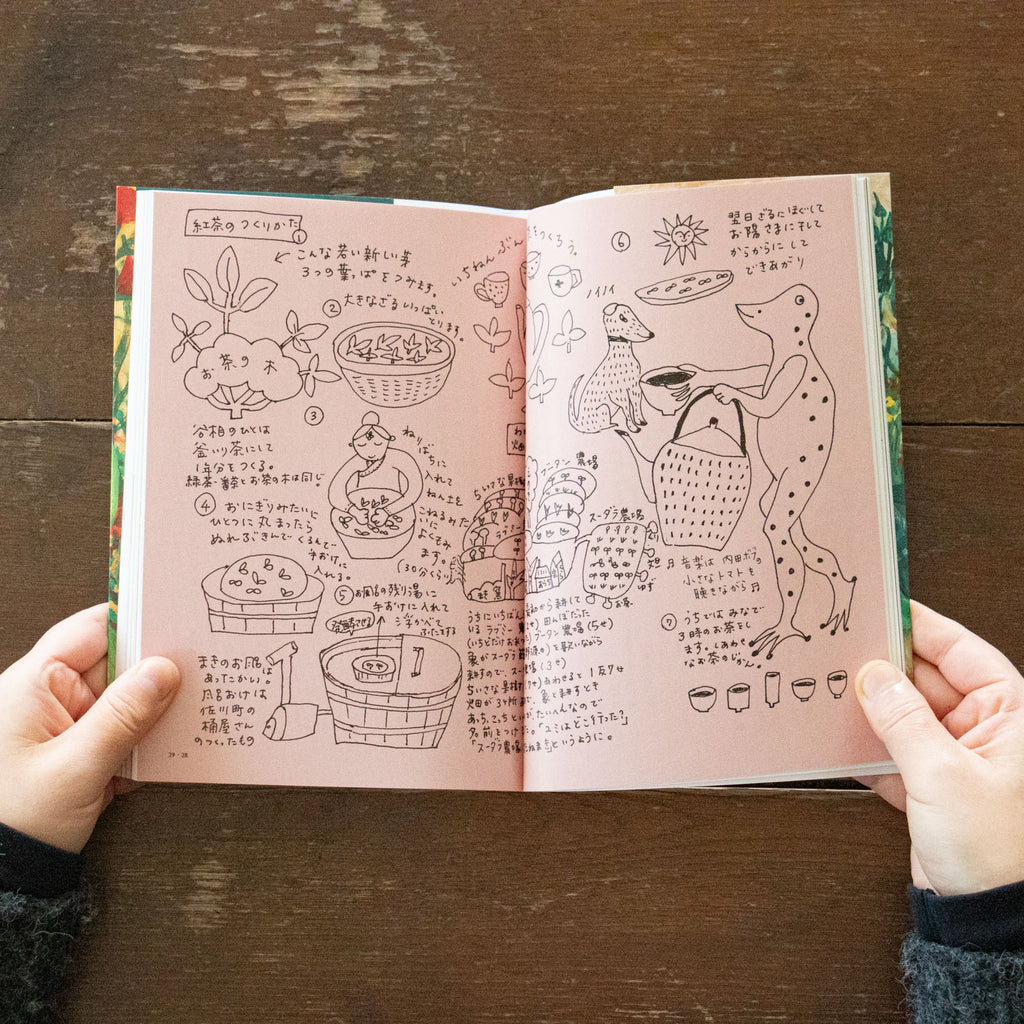 紅茶のつくりかた
①
こんな若い新しい芽
3つの葉っぱをつみます。
② 大きなざるいっぱい
とります。
お茶の木
③
谷相のひとは
釜いり茶にして
1年分をつくる。
緑茶・番茶とお茶の木は同じ。
ねり
ばちに
入れて
ねん土を
こねるみた
いに
よくもみ
ます。
(30分くらい)
④ おにぎりみたいに
ひとつに丸まったら
ぬれぶきんでくるんで
手おけに
入れる。
⑤ お風呂の残り湯に
手おけに入れて
うかべて
ふたをする
発酵させる
まきのお風呂は
あったかい。
風呂おけは
佐川町の
桶屋さん
のつくったもの
29 - 28
いちねんぶん
をつくろう。
ちいさな果樹
ラブ
ブータン農場
スータラ農場
ゆず
お茶
うちにいちばん
いるラブミー
(いちどだけお米
象がスータラ節
耕すので、スー
ちいさな果樹
畑が3ヶ所
あっち、こっち
名前をつけ
「スータラ農場
から耕して
田んぼだった
ブータン農場(5セ)
を歌いながら
農場(3セ)
合わせると1反7セ
象と耕すぞ
たいへんなので
た。「ユミはどこ行った?」
というように。
⑥
翌日ざるにほぐして
お陽さまに干して
からからにして
できあがり
ノイノイ
♬音楽は内田ボブの
小さなトマトを
聴きながら♬
⑦ うちではみなで
3時のお茶をし
ます。しあわせ
なお茶のじかん。